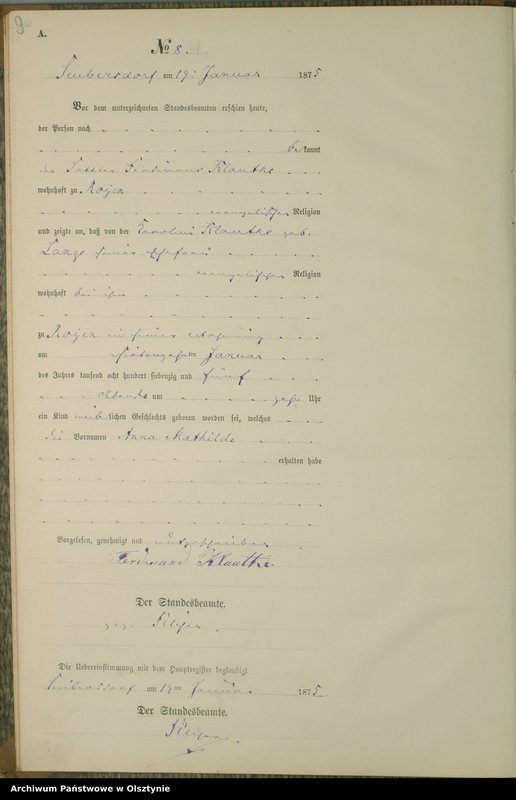 9
A.
No 8.
am 19. Januar 1875.
Vor dem unterzeichneten Standesbeamten erschien heute,
der Person nach
bekannt
der Ferdinand Klautke
wohnhaft zu
evangelischer Religion
und zeigte an, daß von der Klautke geb.
Lange seiner Ehefrau
evangelischer Religion
wohnhaft bei ihm
zu in seiner Wohnung
am siebenzehnten Januar
des Jahres tausend acht hundert siebenzig und fünf
Abends um Uhr
ein Kind weiblichen Geschlechts geboren worden sei, welches
die Vornamen Anna Mathilde
erhalten habe
Vorgelesen, genehmigt und unterschrieben
Ferdinand Klautke
Der Standesbeamte.
gez.
Die Uebereinstimmung mit dem Hauptregister beglaubigt
am 19ten Januar 1875.
Der Standesbeamte.
Archiwum Państwowe w Olsztynie